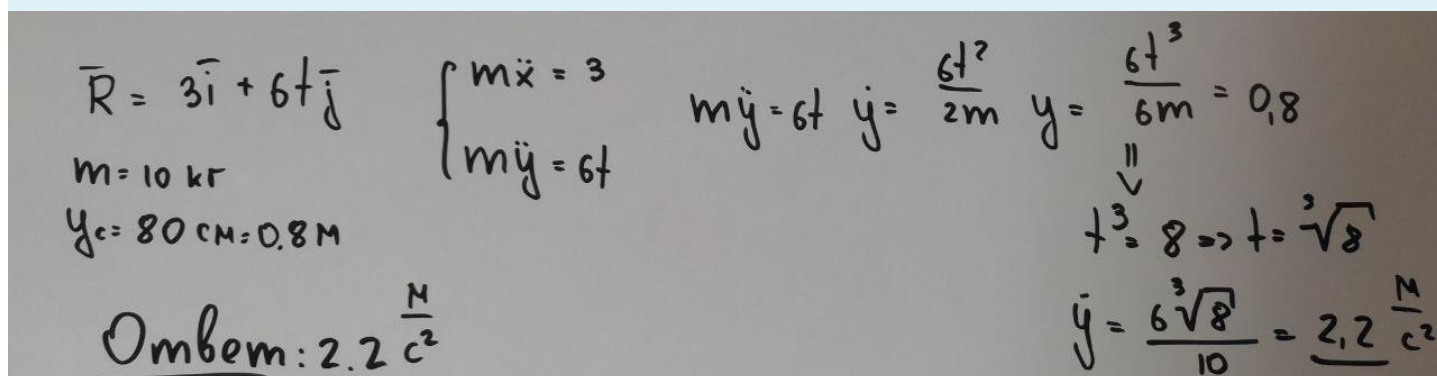 R̄ = 3ī + 6t j̄
m = 10 кг
yc = 80 см = 0,8 м
{ mẍ = 3
mÿ = 6t
mÿ = 6t ẏ = 6t²/2m y = 6t³/6m = 0,8
⇓
t³ = 8 => t = ³√8
ÿ = 6³√8/10 = 2,2 м/с²
Ответ: 2.2 м/с²